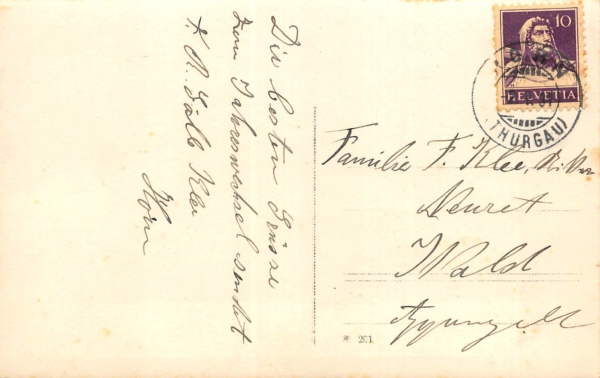 Die besten Grüsse
zum Jahreswechsel sendet
Klee
Horn
Familie F. Klee,
Neuret
Wald
Appenzell
201
10
HELVETIA
HORN
(THURGAU)